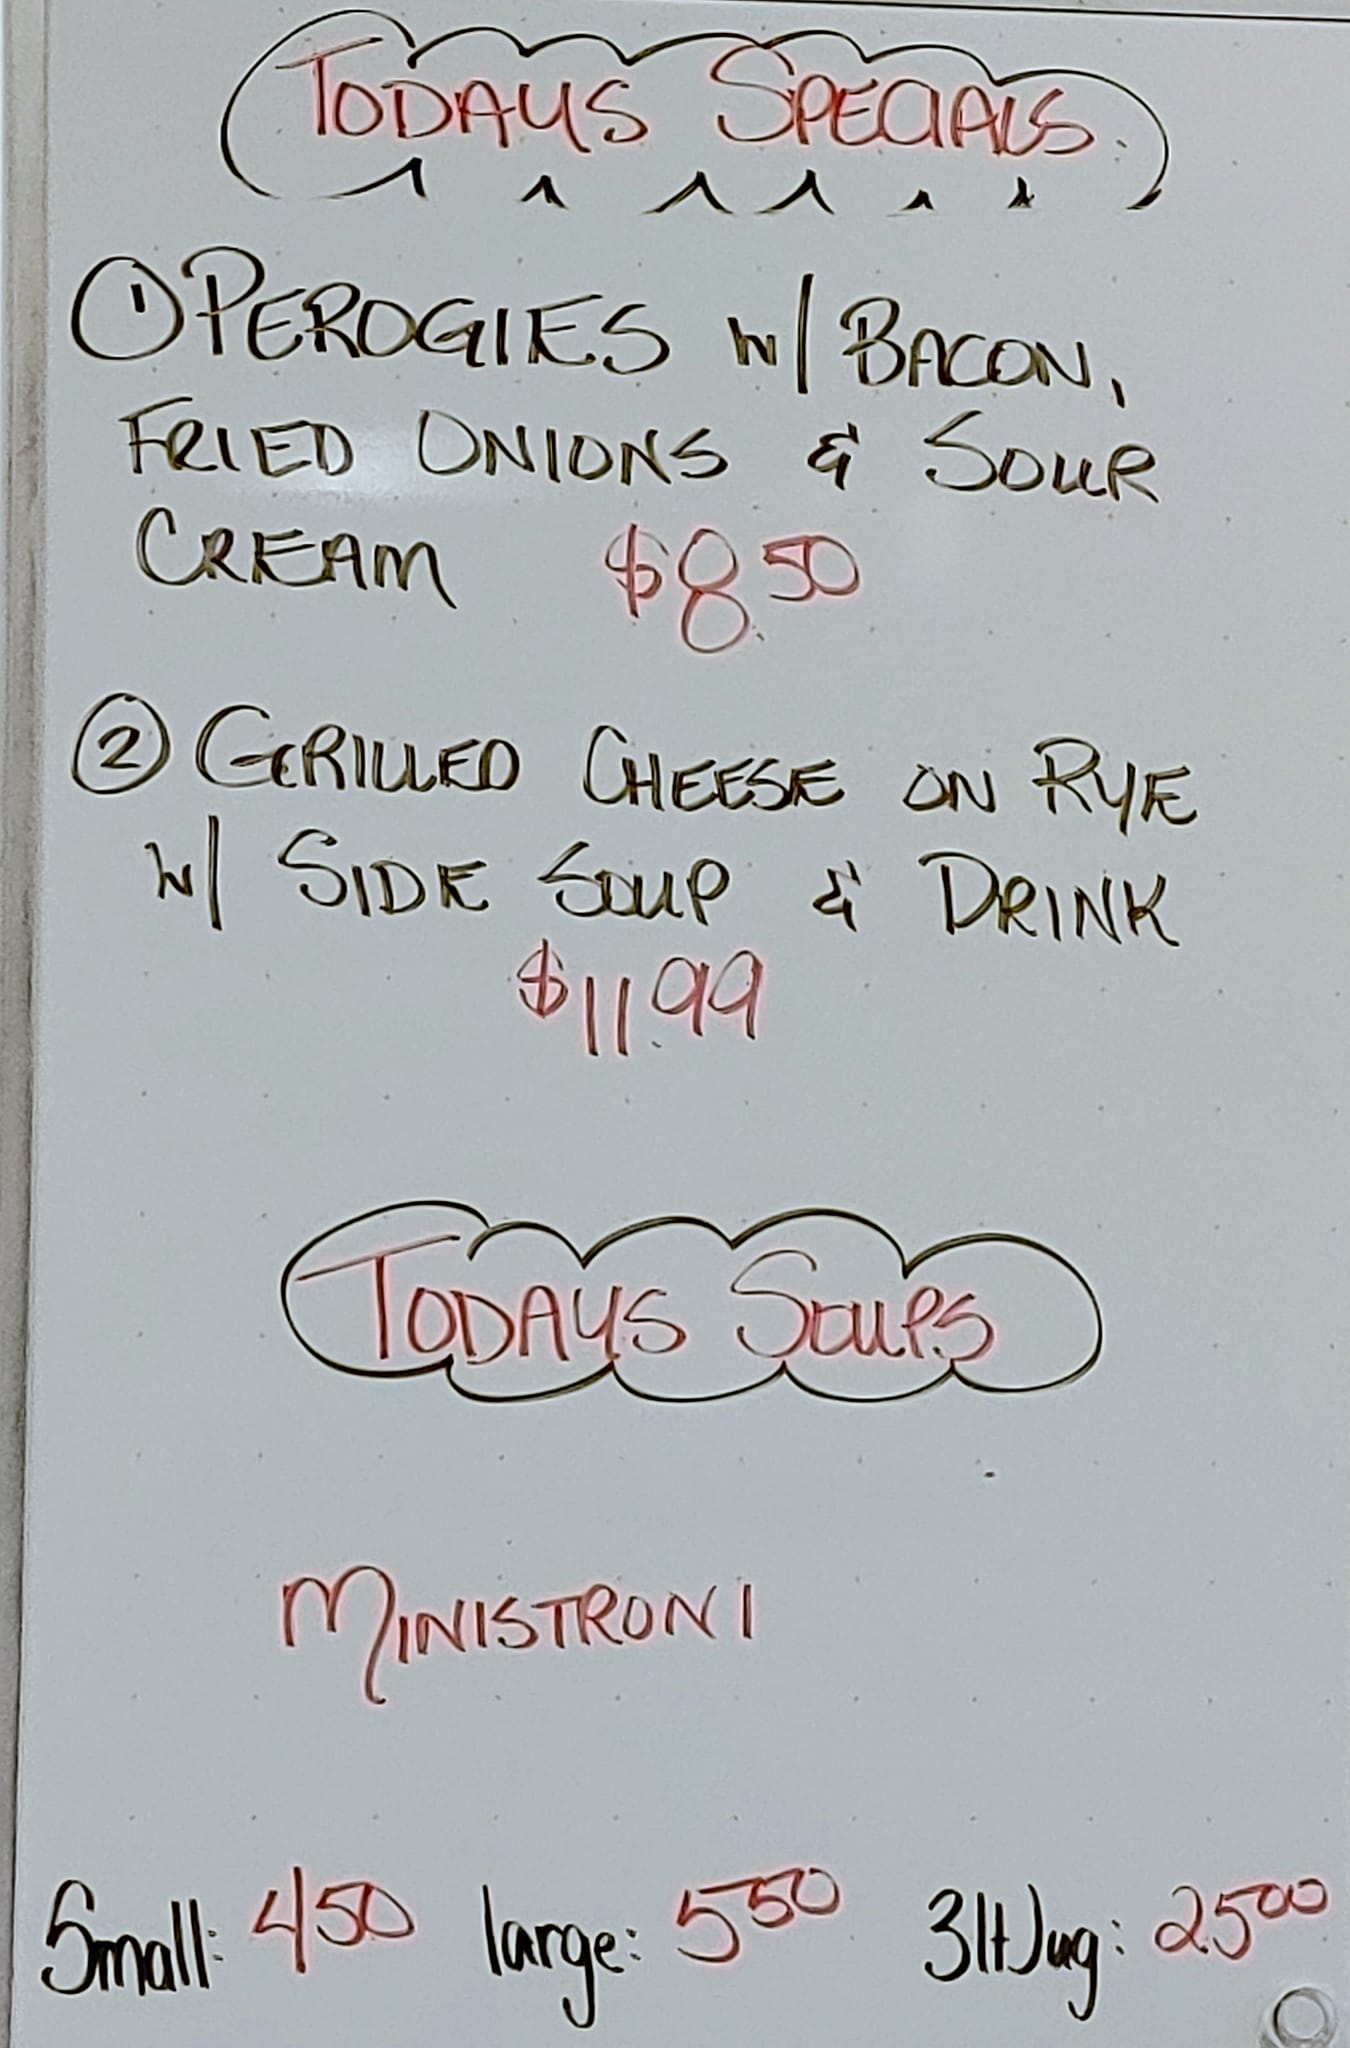 TODAYS SPECIALS
① PEROGIES w/ BACON,
FRIED ONIONS & SOUR
CREAM $8.50
② GRILLED CHEESE ON RYE
w/ SIDE SOUP & DRINK
$11.99
TODAYS SOUPS
MINISTRONI
Small: 450 large: 550 3lt Jug: 2500